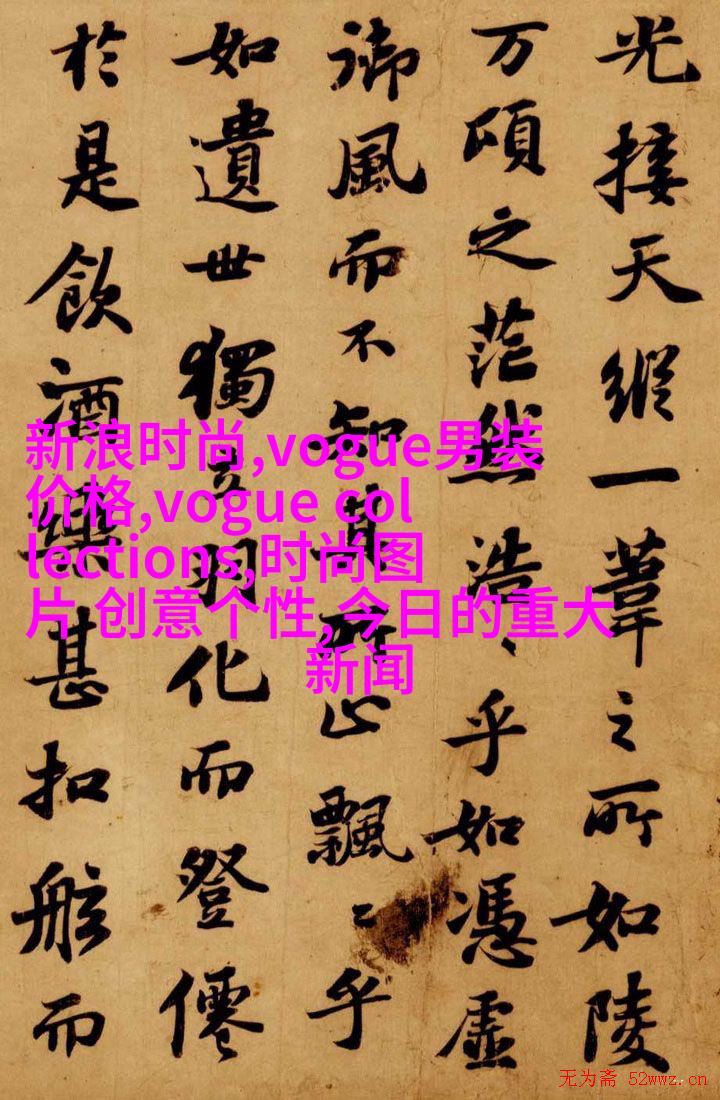 光接天縱一葦之所如陵
万頃之茫然浩〻乎如憑虛
御風而不知其所止飄〻乎
如遺世獨立羽化而登僊
於是飲酒樂甚扣舷而
新浪时尚,vogue男装
价格,vogue col
lections,时尚图
片 创意个性,今日的重大
新闻
无为斋 52wwz.cn